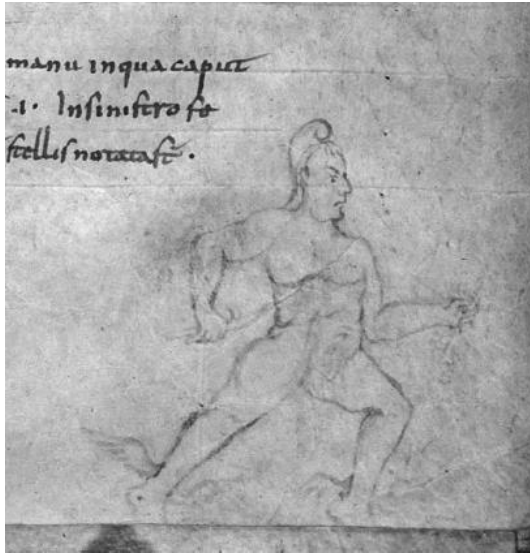 manu inqua caput
.1. Insinistro fe
stellis notata st̄.